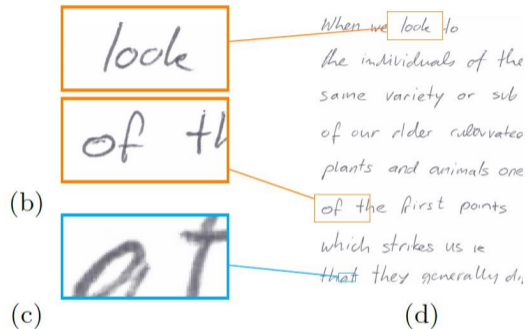 look
of th
(b)
at
(c)
When we look to
the individuals of the
same variety or sub
of our older cultivated
plants and animals one
of the first points
which strikes us is
that they generally di
(d)